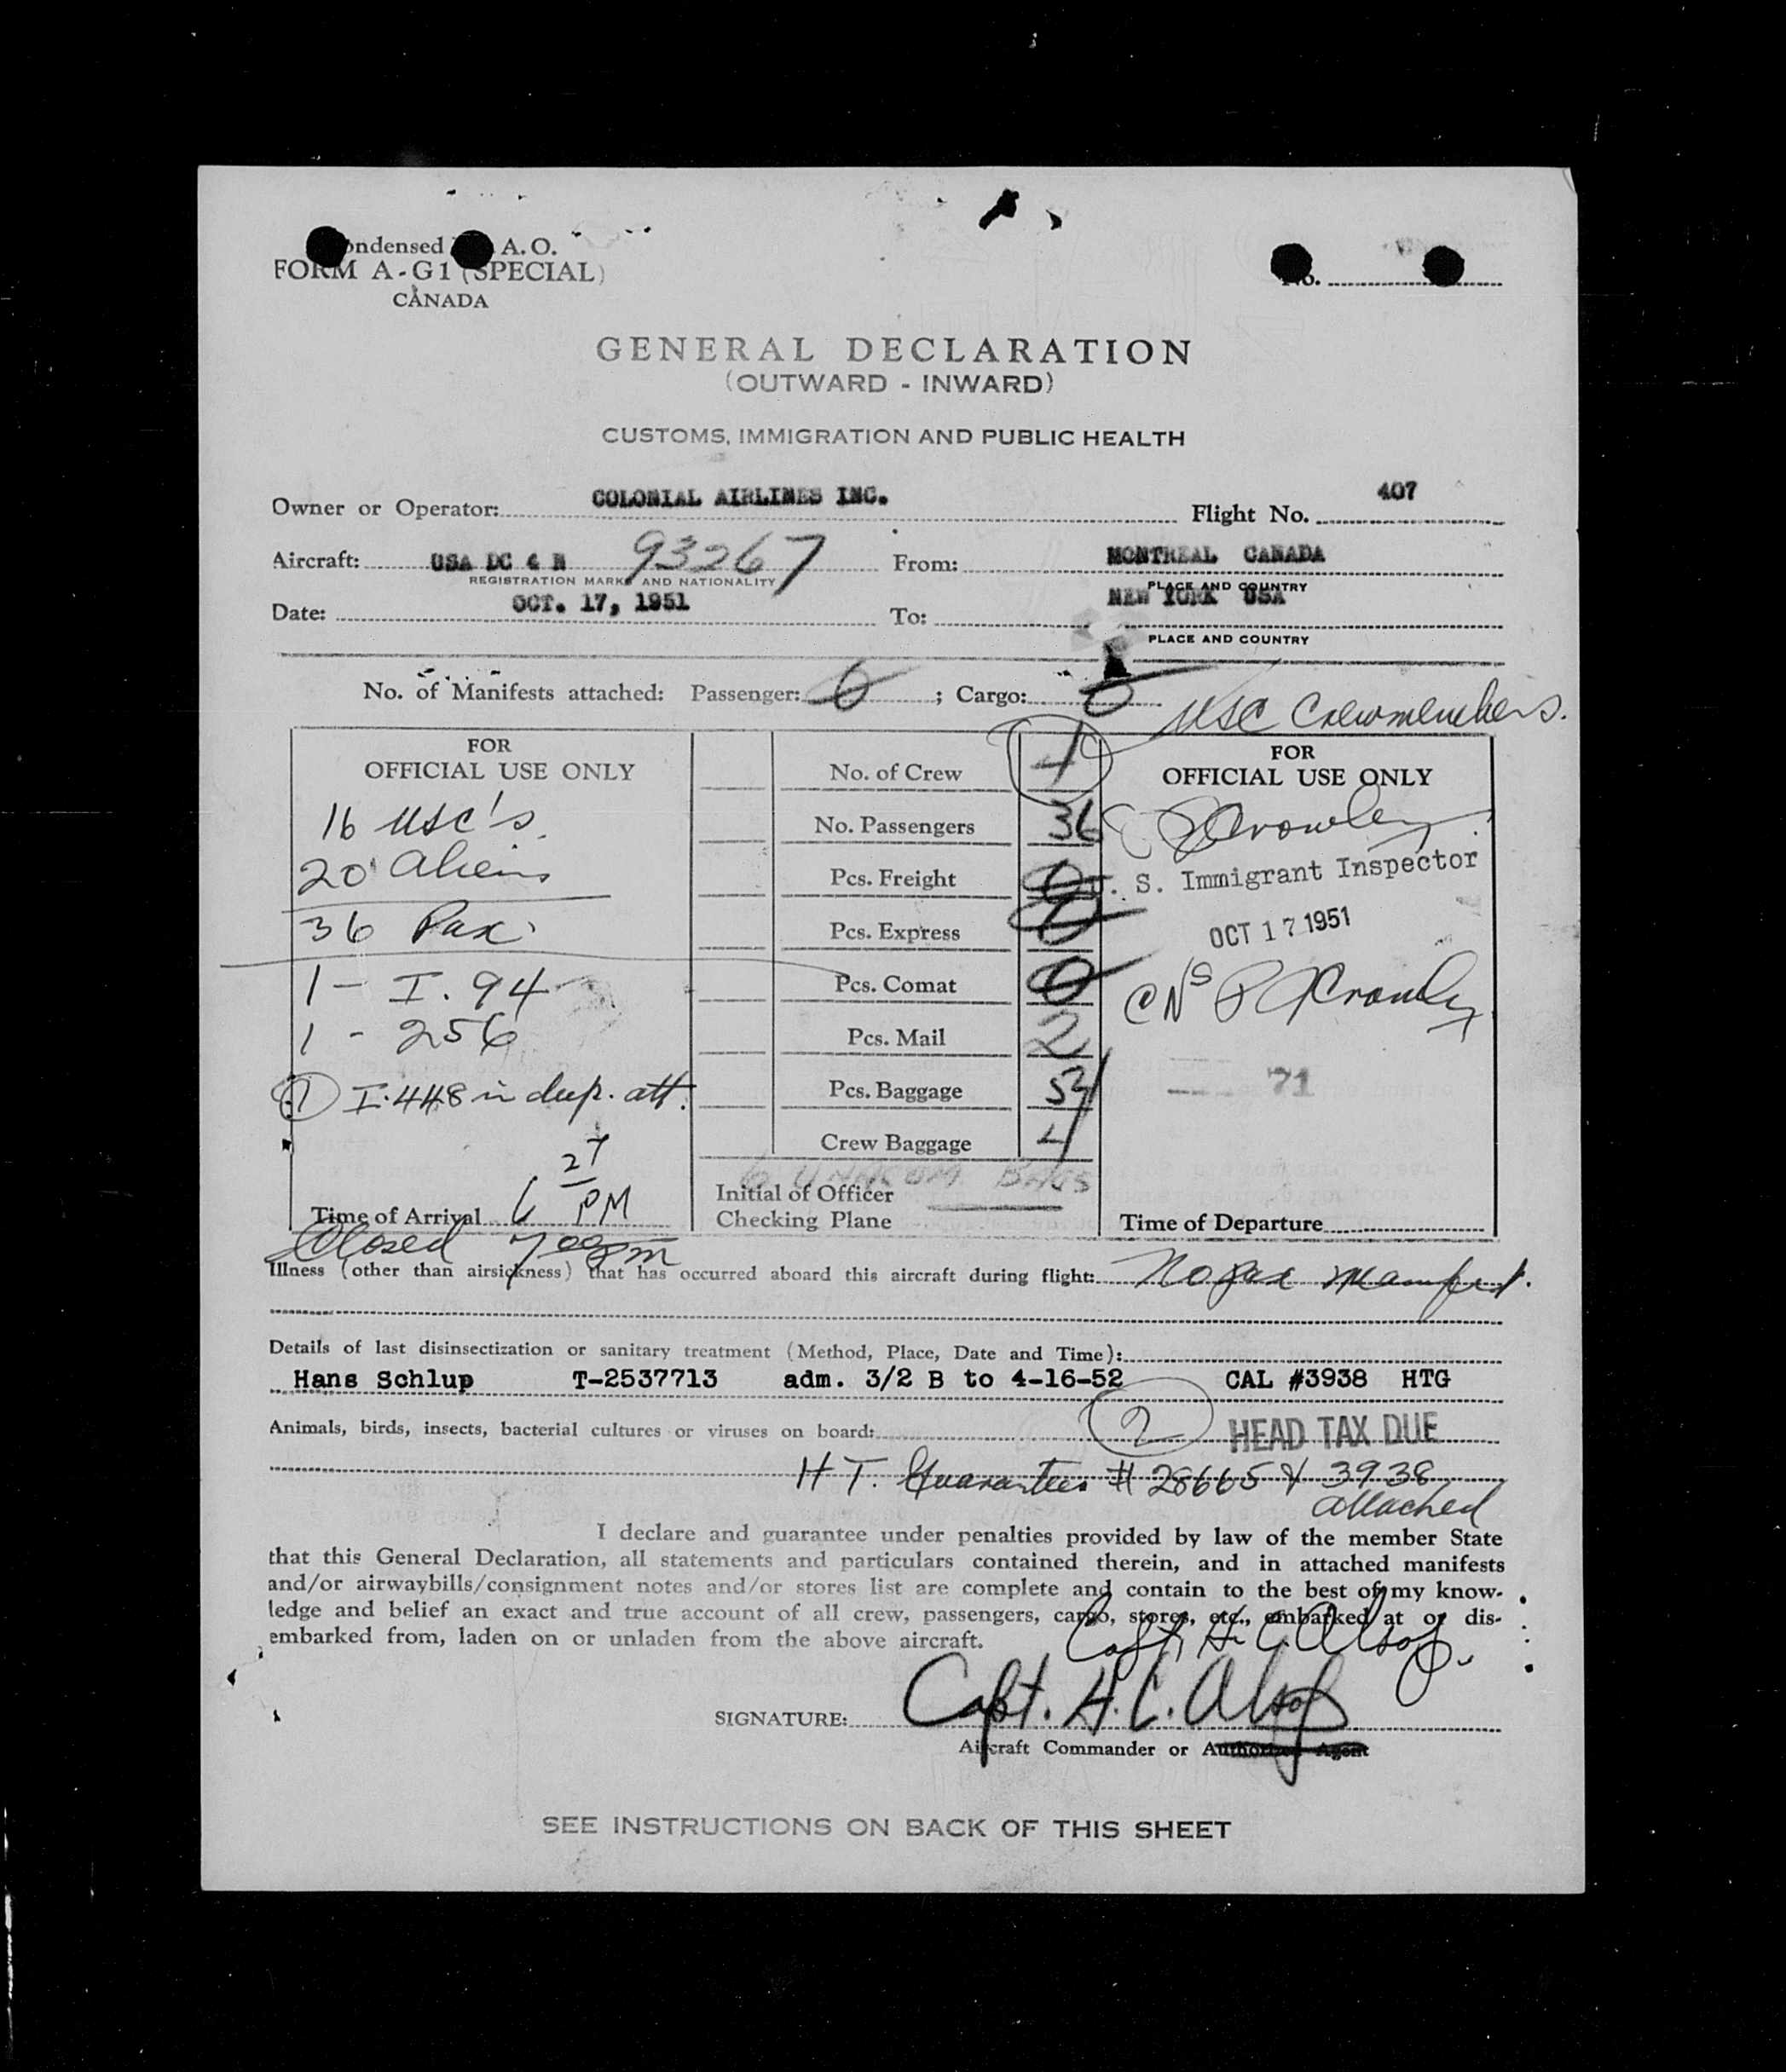 ondensed A.O.
FORM A-G1 (SPECIAL)
CANADA
No.
GENERAL DECLARATION
(OUTWARD - INWARD)
CUSTOMS, IMMIGRATION AND PUBLIC HEALTH
Owner or Operator: COLONIAL AIRLINES INC. Flight No. 407
Aircraft: USA DC 4 N 93267 From: MONTREAL CANADA
REGISTRATION MARKS AND NATIONALITY PLACE AND COUNTRY
Date: OCT. 17, 1951 To: NEW YORK USA
PLACE AND COUNTRY
No. of Manifests attached: Passenger: 0 ; Cargo: 0
USC Crewmembers.
FOR OFFICIAL USE ONLY
16 USC's
20 Aliens
36 Pax
1 - I. 94
1 - 256
1 I-448 in dup. att.
Time of Arrival 6 27 PM
Closed 7 00 pm
No. of Crew 4
No. Passengers 36
Pcs. Freight 0
Pcs. Express 0
Pcs. Comat 0
Pcs. Mail 2
Pcs. Baggage
Crew Baggage 4
6 UNACOM BAGS
Initial of Officer
Checking Plane
FOR
OFFICIAL USE ONLY
Crowley
U. S. Immigrant Inspector
OCT 17 1951
Crowley
71
Time of Departure
Illness (other than airsickness) that has occurred aboard this aircraft during flight: No pax manifest.
Details of last disinsectization or sanitary treatment (Method, Place, Date and Time):
Hans Schlup T-2537713 adm. 3/2 B to 4-16-52 CAL #3938 HTG
Animals, birds, insects, bacterial cultures or viruses on board: 2 HEAD TAX DUE
H T. Guarantees # 28665 & 3938
attached
I declare and guarantee under penalties provided by law of the member State
that this General Declaration, all statements and particulars contained therein, and in attached manifests
and/or airwaybills/consignment notes and/or stores list are complete and contain to the best of my know-
ledge and belief an exact and true account of all crew, passengers, cargo, stores, etc., embarked at or dis-
embarked from, laden on or unladen from the above aircraft.
Capt. H. C. Alsop
SIGNATURE: Capt. H. C. Alsop
Aircraft Commander or Authorized Agent
SEE INSTRUCTIONS ON BACK OF THIS SHEET